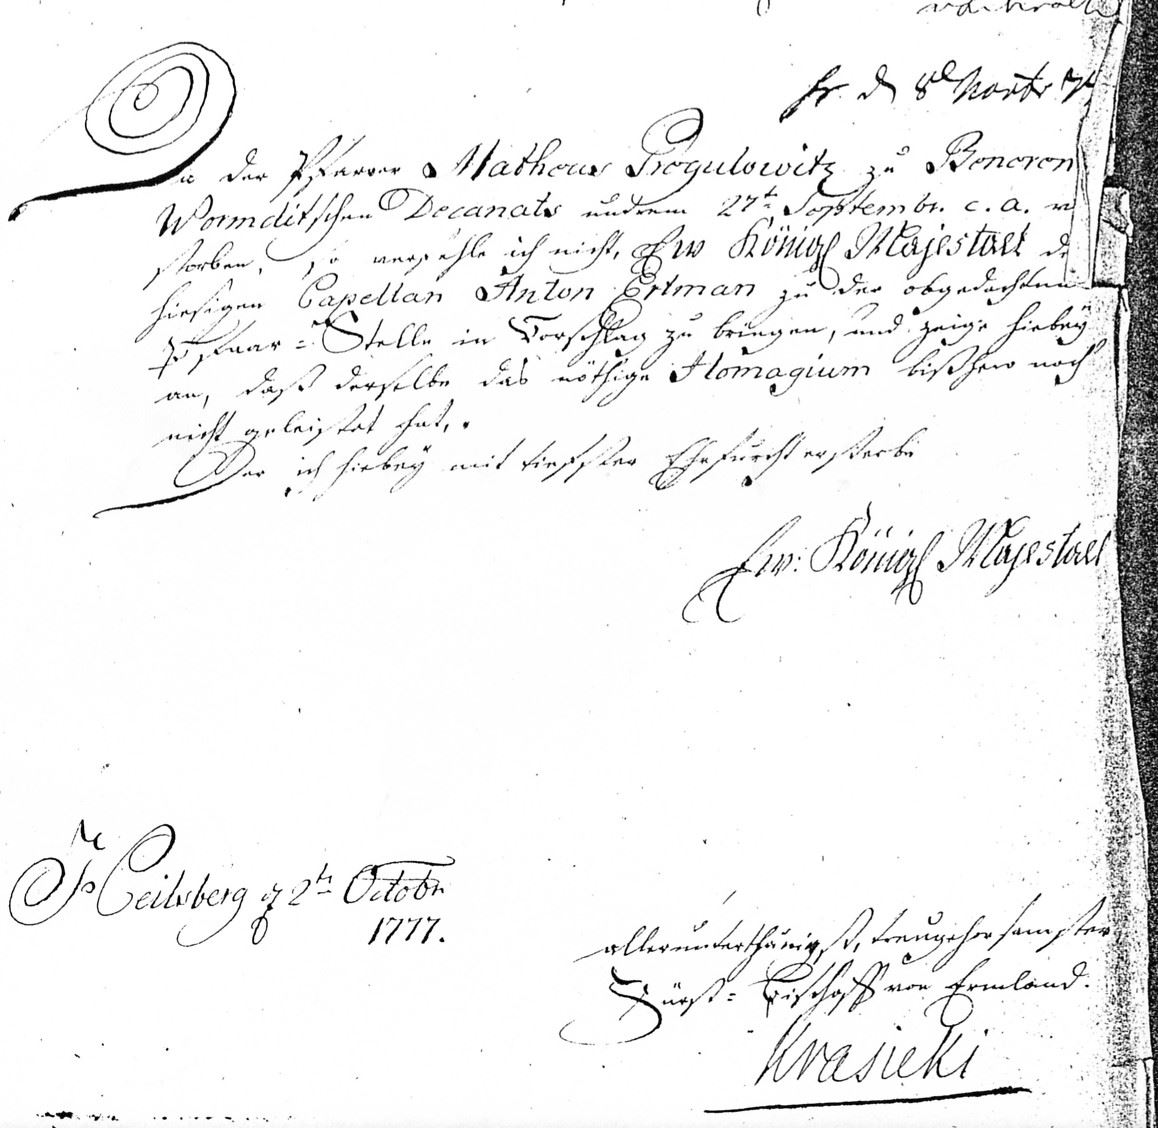 pr. d 8t Novbr. 77
Da der Pfarrer Matheus Progulowitz zu Benoren
Wormditschen Decanats unterm 27t. Septembr. c. a. ver
storben, so verfehle ich nicht, Ew Königl Majestaet de
hiesigen Capellan Anton Ertman zu der obgedachten
Pfaar-Stelle in Vorschlag zu bringen, und zeige hiebey
an, daß derselbe das nöthige Homagium bißhero noch
nicht geleistet hat.
Der ich hiebey mit tiefster Ehrfurcht ersterbe
Ew: Königl Majestaet
Heilsberg d 2tn Octobr
1777.
allerunterthänigst, treugehorsamster
Fürst-Bischoff von Ermland.
Krasicki